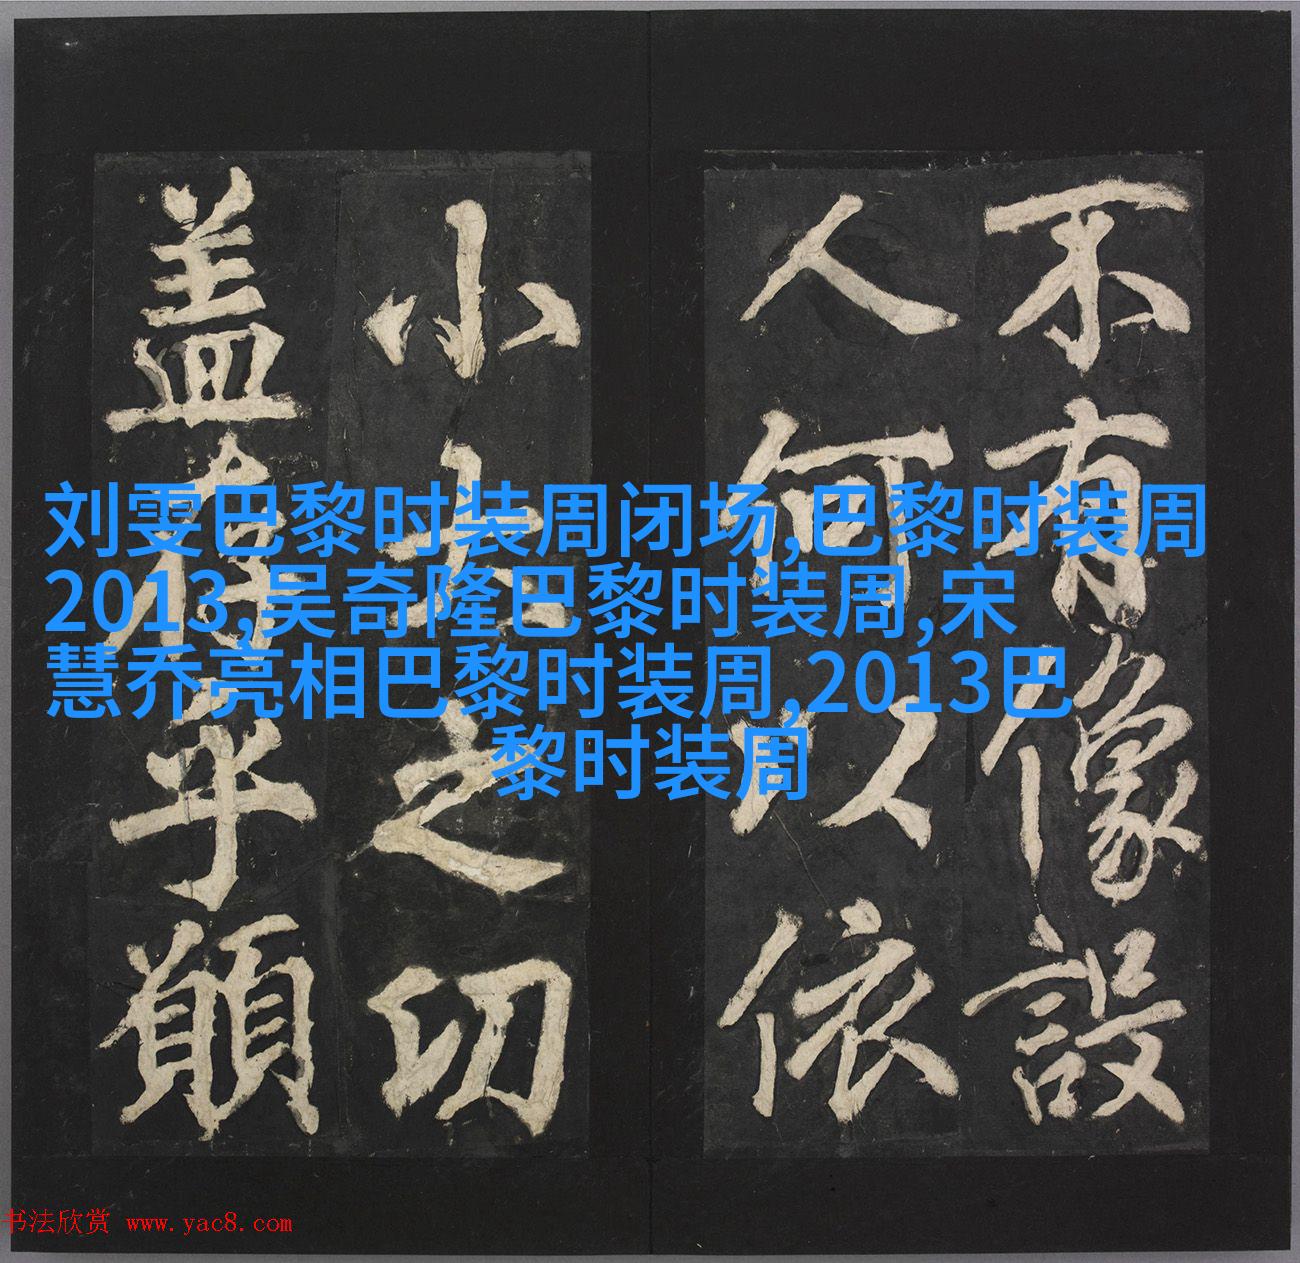 刘雯巴黎时装周闭场,巴黎时装周
2013,吴奇隆巴黎时装周,宋
慧乔亮相巴黎时装周,2013巴
黎时装周
不有像設
人何以依
小大之功
盖存乎願
书法欣赏 www.yac8.com